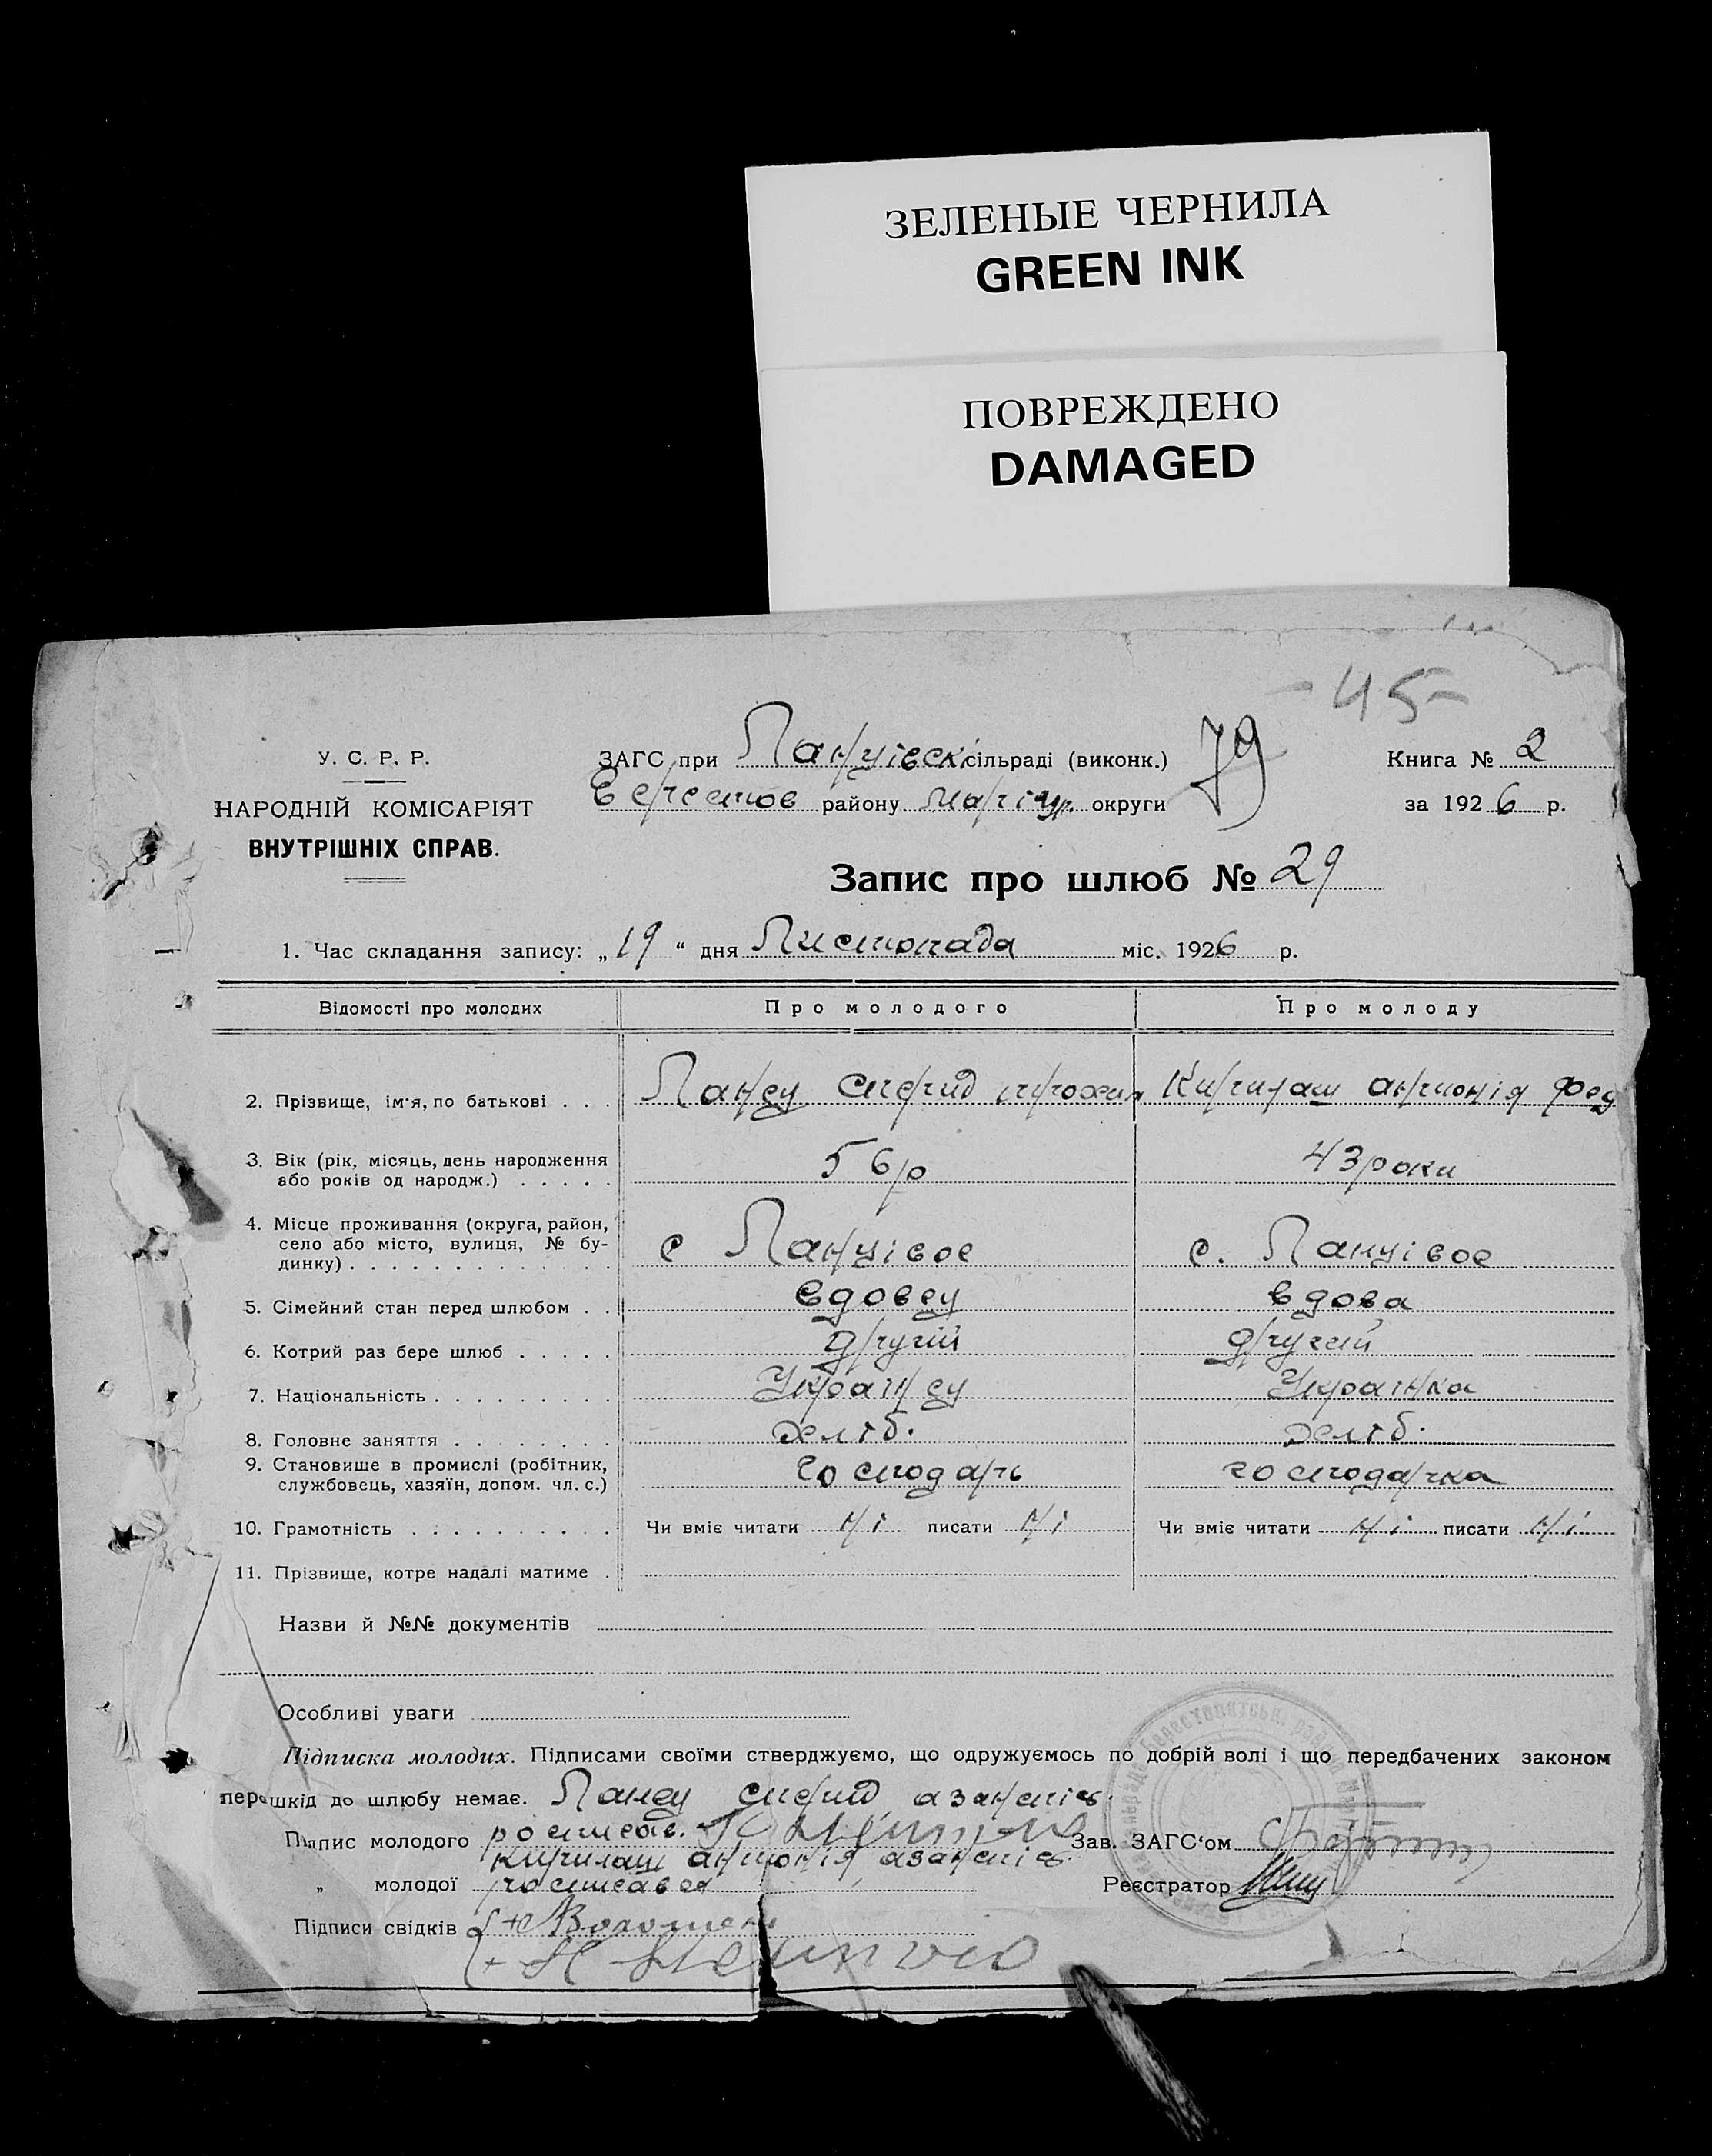 ЗЕЛЕНЫЕ ЧЕРНИЛА
GREEN INK
ПОВРЕЖДЕНО
DAMAGED
-45-
У. С. Р. Р.
НАРОДНІЙ КОМІСАРІЯТ
ВНУТРІШНІХ СПРАВ.
ЗАГС при сільраді (виконк.) 79
району округи
Книга № 2
за 1926 р.
Запис про шлюб № 29
1. Час складання запису: „19“ дня Листопада міс. 1926 р.
Відомості про молодих Про молодого Про молоду
2. Прізвище, ім'я, по батькові . . . Ланец Спирид Кирилаш антонія Фед
3. Вік (рік, місяць, день народження
або років од народж.) . . . . . 56 р 43 роки
4. Місце проживання (округа, район,
село або місто, вулиця, № бу-
динку) . . . . . . . . . . . . . с Ланцівое с. Ланцівое
5. Сімейний стан перед шлюбом . . вдовец вдова
6. Котрий раз бере шлюб . . . . . другій другий
7. Національність . . . . . . . . . Украінец Украінка
8. Головне заняття . . . . . . . . хліб. хліб.
9. Становище в промислі (робітник,
службовець, хазяїн, допом. чл. с.) господарь господарка
10. Грамотність . . . . . . . . . . Чи вміє читати ні писати ні Чи вміє читати ні писати ні
11. Прізвище, котре надалі матиме .
Назви й №№ документів
Особливі уваги
Підписка молодих. Підписами своїми стверджуємо, що одружуємось по добрій волі і що передбачених законом
перешкід до шлюбу немає. Ланец Спирид
Підпис молодого
Зав. ЗАГС'ом
Кирилаш антонія
„ молодої
Реєстратор
Підписи свідків